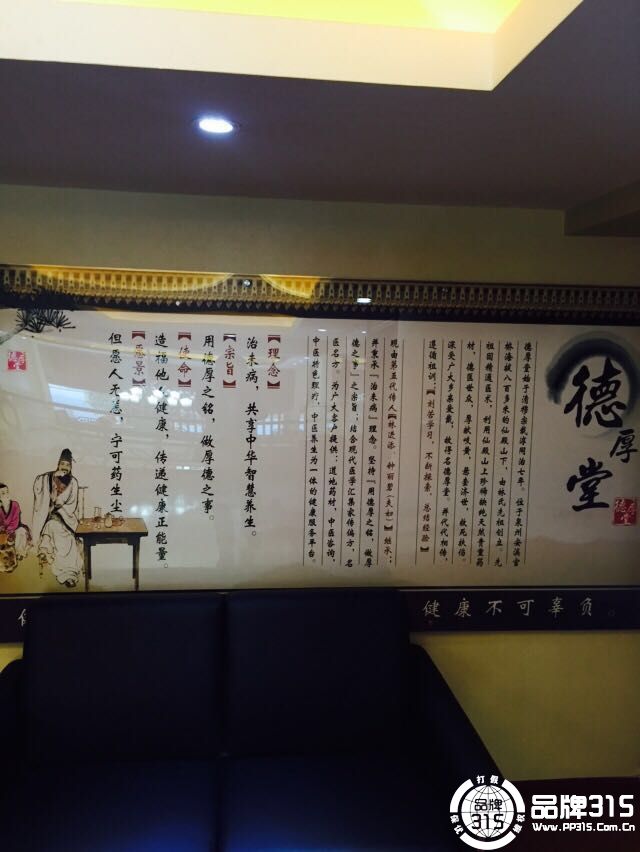 德厚堂
德厚堂
德厚堂始于清穆宗载淳同治七年,位于泉州安溪官
桥海拔八百多米的仙殿山下,由林氏先祖创立。先
祖因精通医术,利用仙殿山上珍稀被纯天然贵重药
材,德医世众,厚献岐黄,悬壶济世,救死扶伤。
深受广大乡亲爱戴,故得名德厚堂,并代代相传,
遵循祖训:【刻苦学习,不断探索,总结经验】
现由第五代传人【林进添、钟丽碧(夫妇)】继承;
并秉承『治未病』理念。坚持『用德厚之铭,做厚
德之事』之宗旨;结合现代医学汇集家传偏方、名
医名方。为广大客户提供:道地药材、中医咨询、
中医特色理疗,中医养生为一体的健康服务平台。
【理念】
治未病,共享中华智慧养生。
【宗旨】
用德厚之铭,做厚德之事。
【使命】
造福他人健康,传递健康正能量。
【愿景】
但愿人无恙,宁可药生尘
德厚堂
健康不可辜负。
打假
保优
维权
品牌
315
品牌315
Www.PP315.Com.Cn